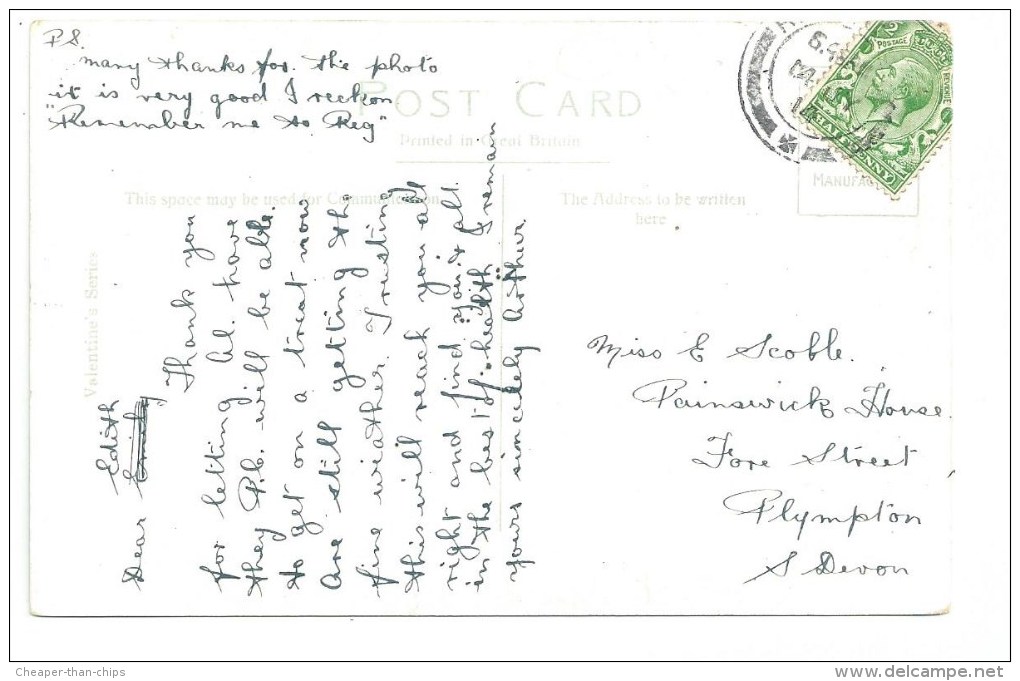 P.S.
many thanks for the photo
it is very good I reckon
"Remember me to Reg"
POST CARD
Printed in Great Britain
This space may be used for Communication
The Address to be written
here
Valentine's Series
Edith
Dear
"Thank you
for letting Al. have
they P.b. will be able
to get on a treat now
are still getting the
fine weather. Trusting
this will reach you all
right and find You & all
in the best of health I remain
yours sincerely Arthur
Miss E Scoble.
Painswick House
Fore Street
Plympton
S Devon
POSTAGE
REVENUE
HALFPENNY
MANUFAC
Cheaper-than-chips
www.delcampe.net